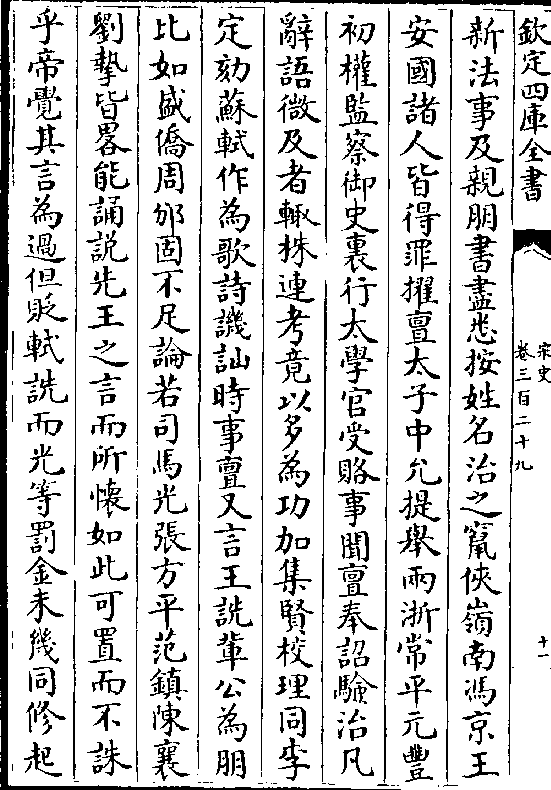 欽定四庫全書
宋史
卷三百二十九
十一
新法事及親朋書盡悉按姓名治之竄俠嶺南馮京王
安國諸人皆得罪擢亶太子中允提舉兩浙常平元豐
初權監察御史裏行太學官受賂事聞亶奉詔驗治凡
辭語微及者輙株連考竟以多為功加集賢校理同李
定劾蘇軾作為歌詩譏訕時事亶又言王詵輩公為朋
比如盛僑周邠固不足論若司馬光張方平范鎮陳襄
劉摯皆畧能誦説先王之言而所懷如此可置而不誅
乎帝覺其言為過但貶軾詵而光等罰金未幾同修起